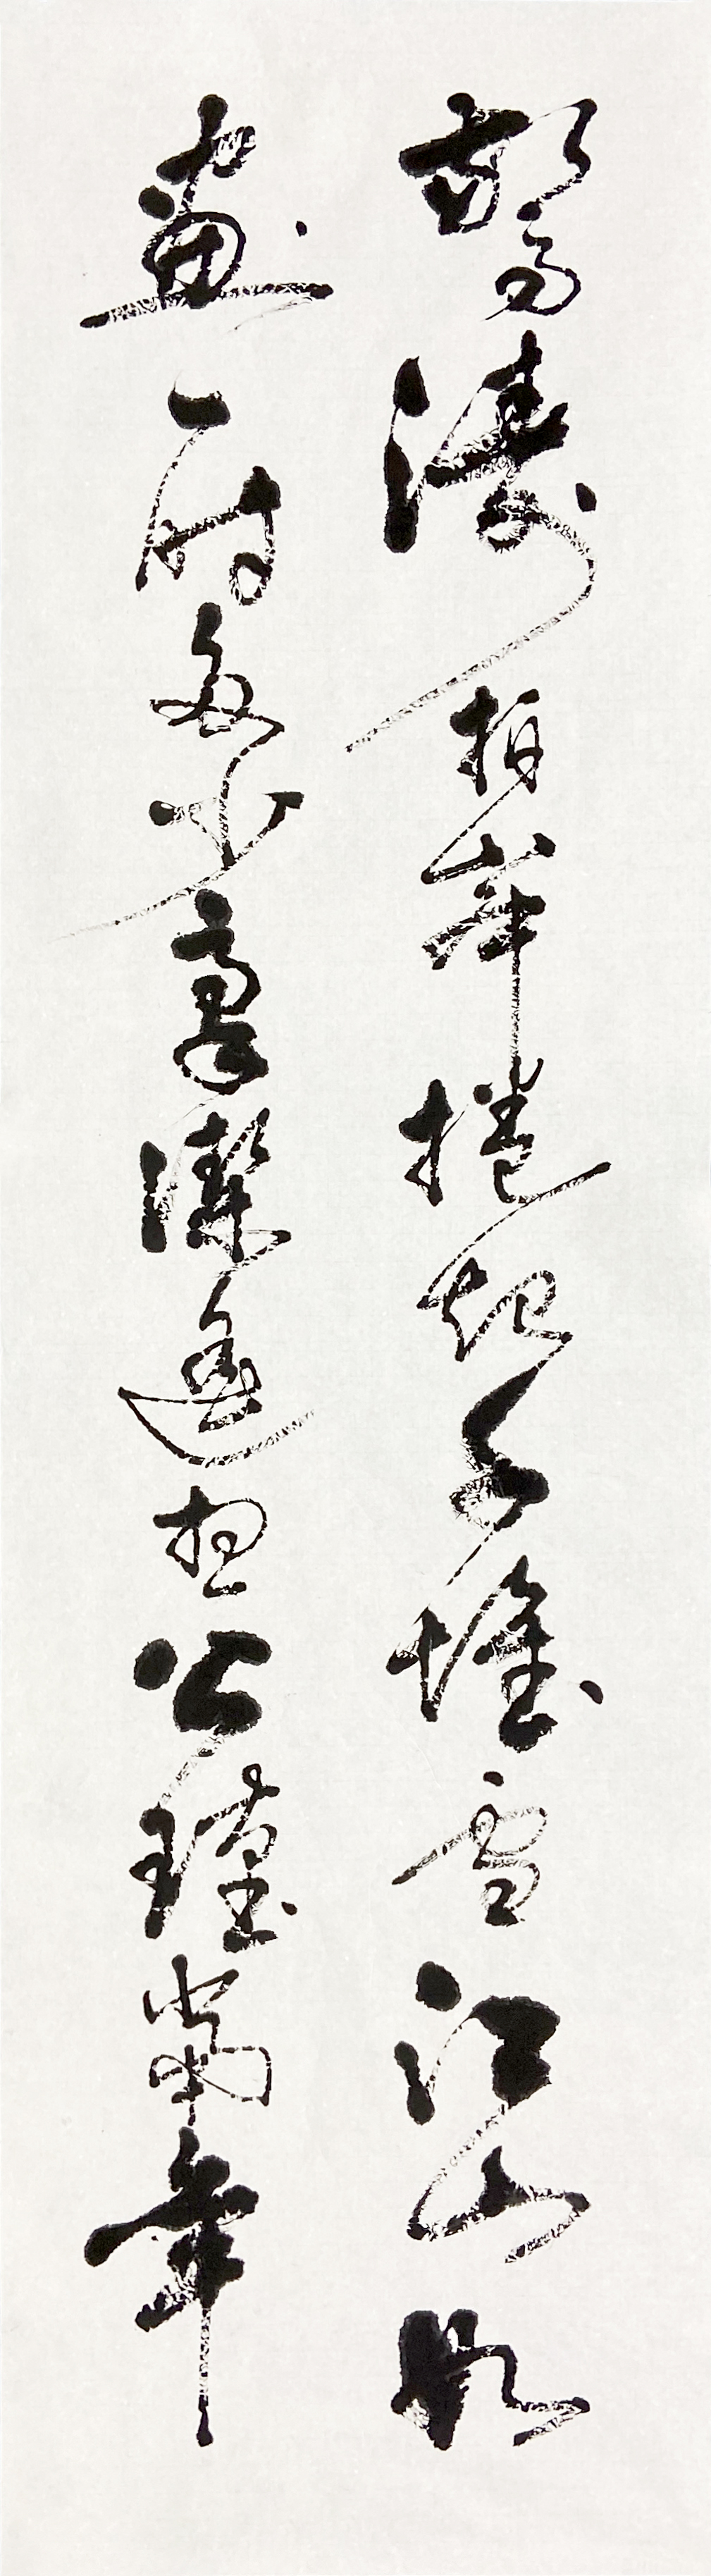 驚濤拍岸捲起千堆雪江山如
畫一時多少豪傑遙想公瑾當年